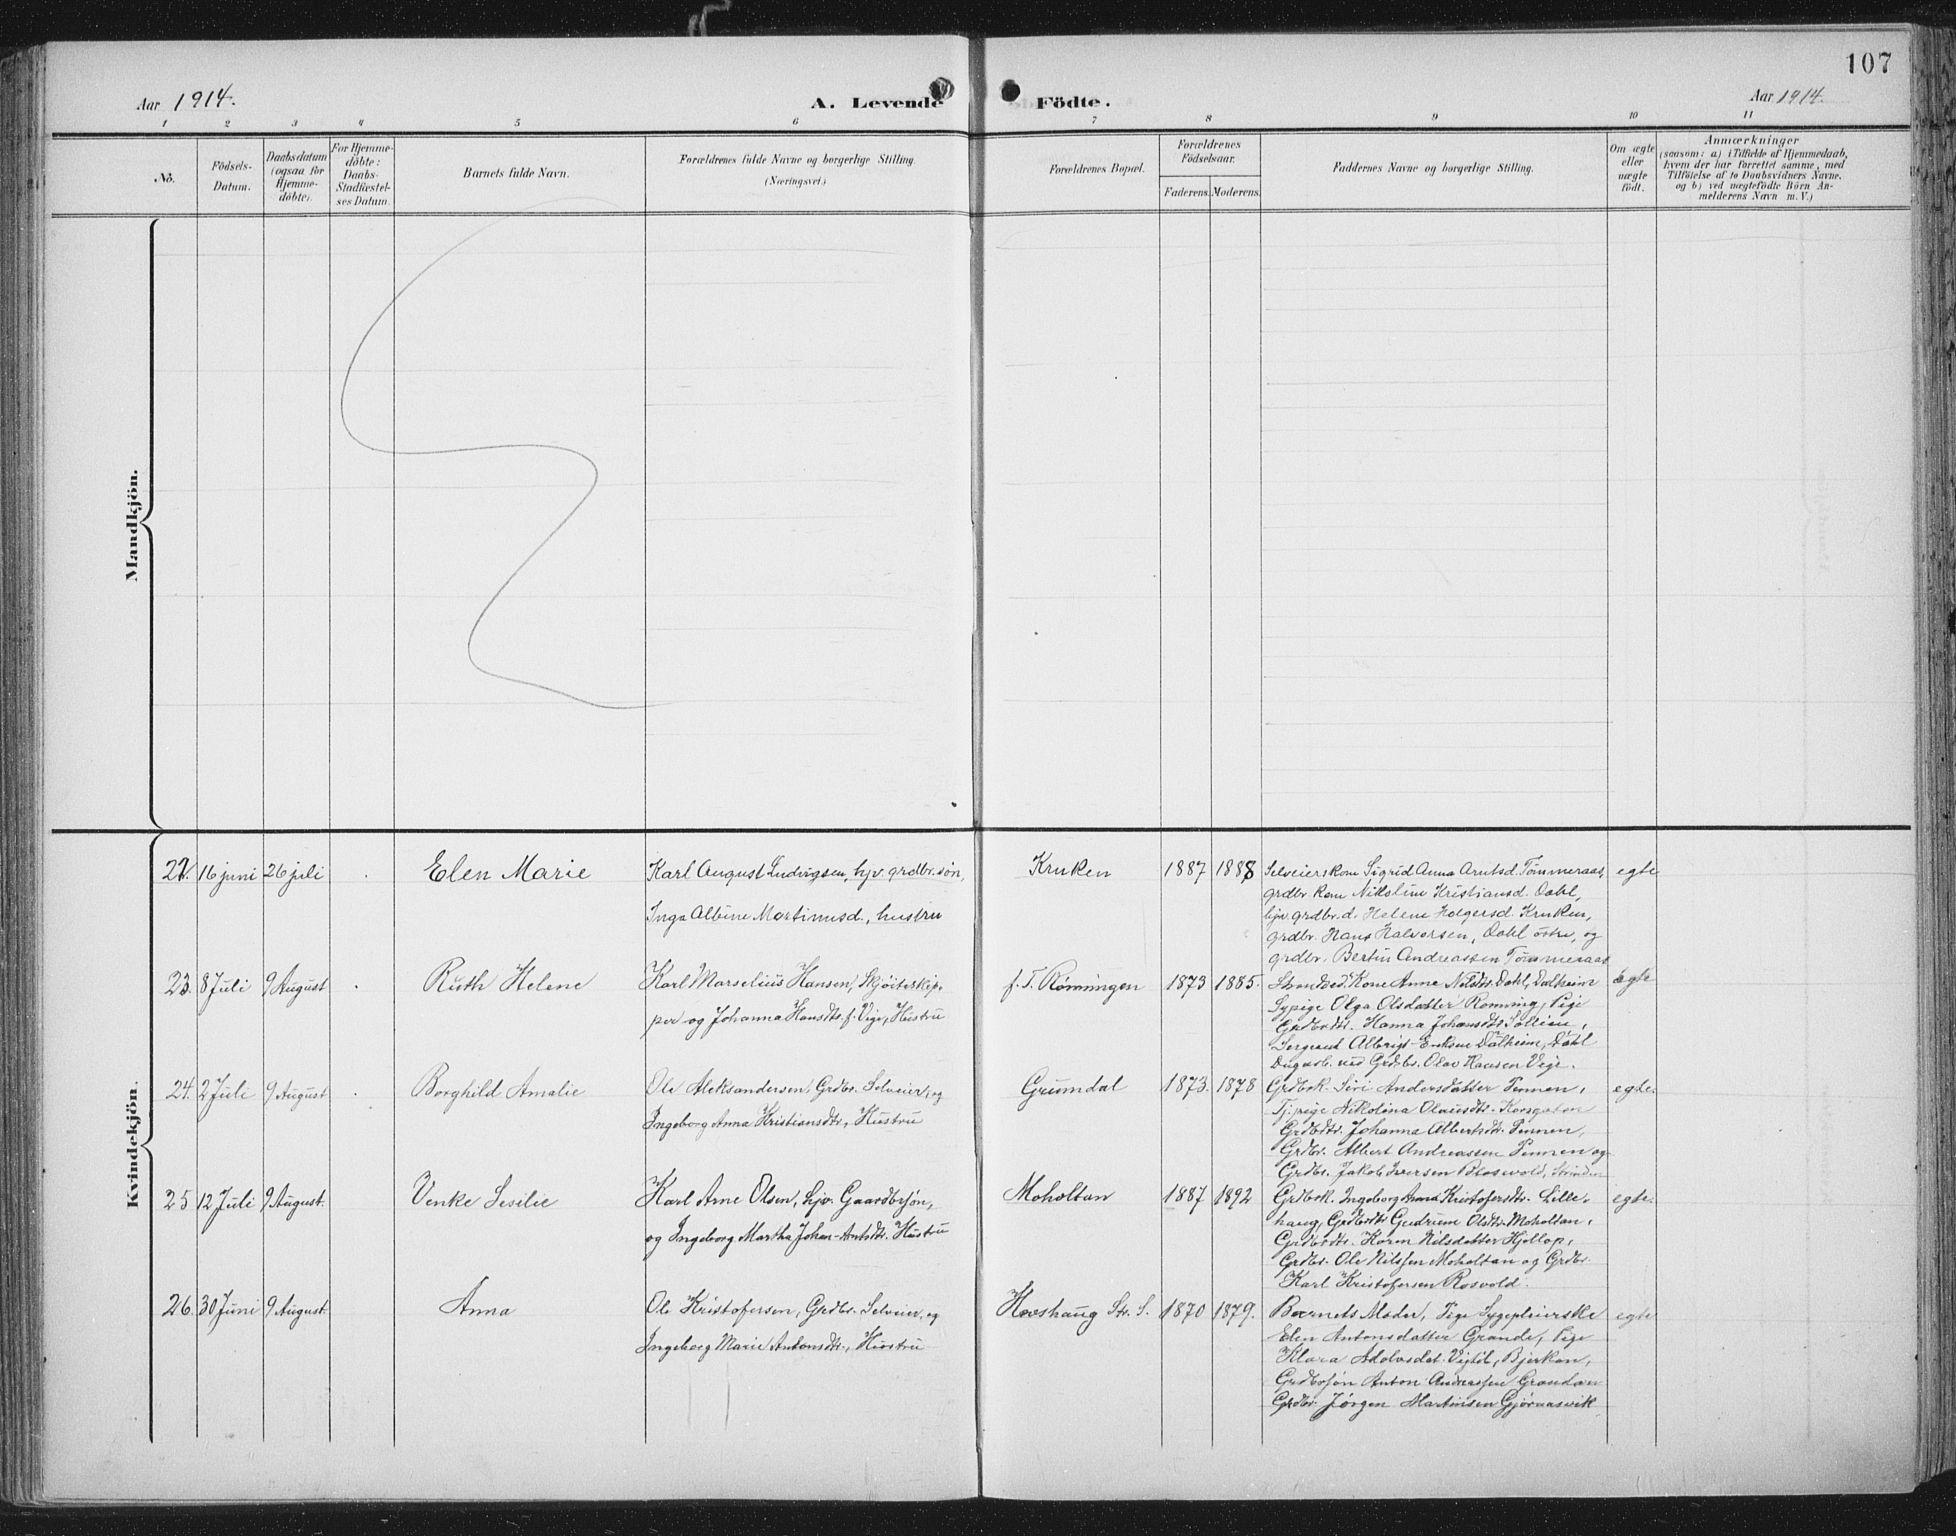 107
Aar 1914.
A. Levende Födte.
Aar 1914.
1 2 3 4 5 6 7 8 9 10 11
No.
Födsels-
Datum.
Daabsdatum
(ogsaa for
Hjemme-
döbte).
For Hjemme-
döbte:
Daabs-
Stadfæstel-
ses Datum.
Barnets fulde Navn.
Forældrenes fulde Navne og borgerlige Stilling.
(Næringsvei.)
Forældrenes Bopæl.
Forældrenes
Födselsaar.
Faderens. Moderens.
Faddernes Navne og borgerlige Stilling.
Om ægte
eller
uægte
födt.
Anmærkninger
(saasom: a) i Tilfælde af Hjemmedaab,
hvem der har forrettet samme, med
Tilföielse af to Daabsvidners Navne.
og b) ved uægtefödte Börn An-
melderens Navn m. V.)
Mandkjön.
Kvindekjön.
22. 16 juni 26 juli Elen Marie
Karl August Ludvigsen, hjv. grdbr. søn,
Inga Albine Martinusd., hustru
Kruken 1887 1888
Selveierskone Sigrid Anna Arntsd. Tømmeraas,
grdbr. kone Nikoline Kristiansd. Dahl,
hjv. grdbr. d. Helene Holgersd. Kruken,
grdbr. Hans Halvorsen, Dahl östre, og
grdbr. Bertin Andreassen Tømmeraas
egte
23. 8 Juli 9 August Ruth Helene
Karl Marselius Hansen, Skjøiteskip-
per og Johanna Hansdtr. f. Vige, Hustru
f. T. Rømmingen 1873 1885.
Kone Anne Dahl, Dalheim
Sypige Olga Olsdatter Rømming, Pige
Grdbrdtr. Hanna Johansdtr. Søllien,
Sergeant Albrigt Eriksen Dalheim, Dahl
Grdbr. Olav Hansen Vige.
egte
24. 2 Juli 9 August Borghild Amalie
Ole Aleksandersen, Grdbr. Selveier, og
Ingeborg Anna Kristiansdtr., Hustru
Grumdal 1873. 1878
Grdbrk. Siri Andersdatter Tennen,
Tj. pige Nikolina Olausdtr. Korsgaten
Grdbrdtr. Johanna Albertsdtr. Tennen,
Grdbr. Albert Andreassen Tennen og
Grdbr. Jakob Iversen Strinden
egte.
25 12 Juli 9 August. Venke Sesilie
Karl Arne Olsen, hjv. Gaardbrsøn,
og Ingeborg Martha Johan-Antsdtr. Hustru
Moholtan 1887 1892
Grdbrk. Ingeborg Anna Kristofersdtr. Lille-
haug, Grdbrdtr. Gudrun Olsdtr. Moholtan,
Grdbrdtr. Karen Nilsdatter Hjellop,
Grdbr. Ole Nilssen Moholtan og Grdbr.
Karl Kristofersen Rosvold.
egte.
26. 30 Juni 9 August. Anna
Ole Kristofersen, Grdbr. Selveier, og
Ingeborg Marie Antonsdtr., Hustru
Hooshaug Str. S. 1870 1879.
Barnets Moder, Pige Sygepleierske
Elen Antonsdatter Grande, Pige
Klara Adolvsdat. Vigtil, Bjerkan,
Grdbrsøn Anton Andreassen Grandan
Grdbr. Jørgen Martinsen Gjørnasvik
egte